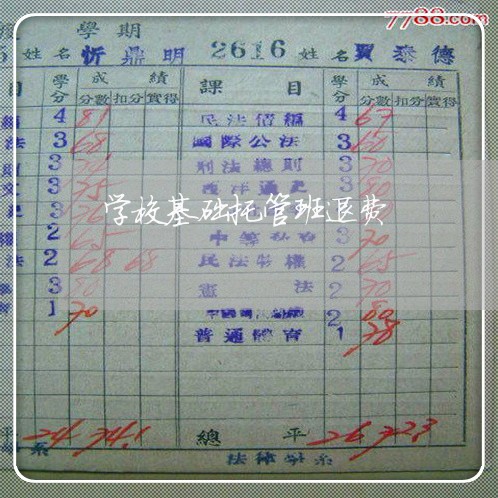 7788.com
度 學期
5 姓名 忻鼎明 2616 姓名 賈泰德
目 學分 成績 課目 學分 成績
分數 扣分 實得 分數 扣分 實得
編 4 81 民法債編 4 67
法 3 68 國際公法 3 60
則 3 刑法總則 3 70
文 3 75 西洋通史 3 80
史 3 76 3
學校基础托管班退费
2 65 中等 3 70
法 2 68 68 民法物權 2 65
3 80 憲法 2 70
育 1 70 2 80
普通體育 1 78
平 24 74.1 總平 26 72.3
系 法律學系